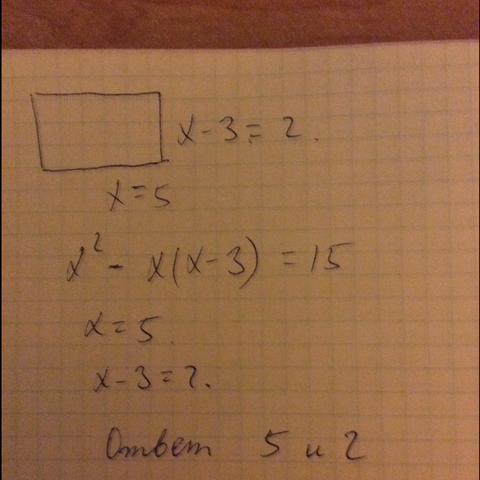 x-3=2.
x=5
x²- x(x-3) = 15
x=5.
x-3=2.
Ответ 5 и 2